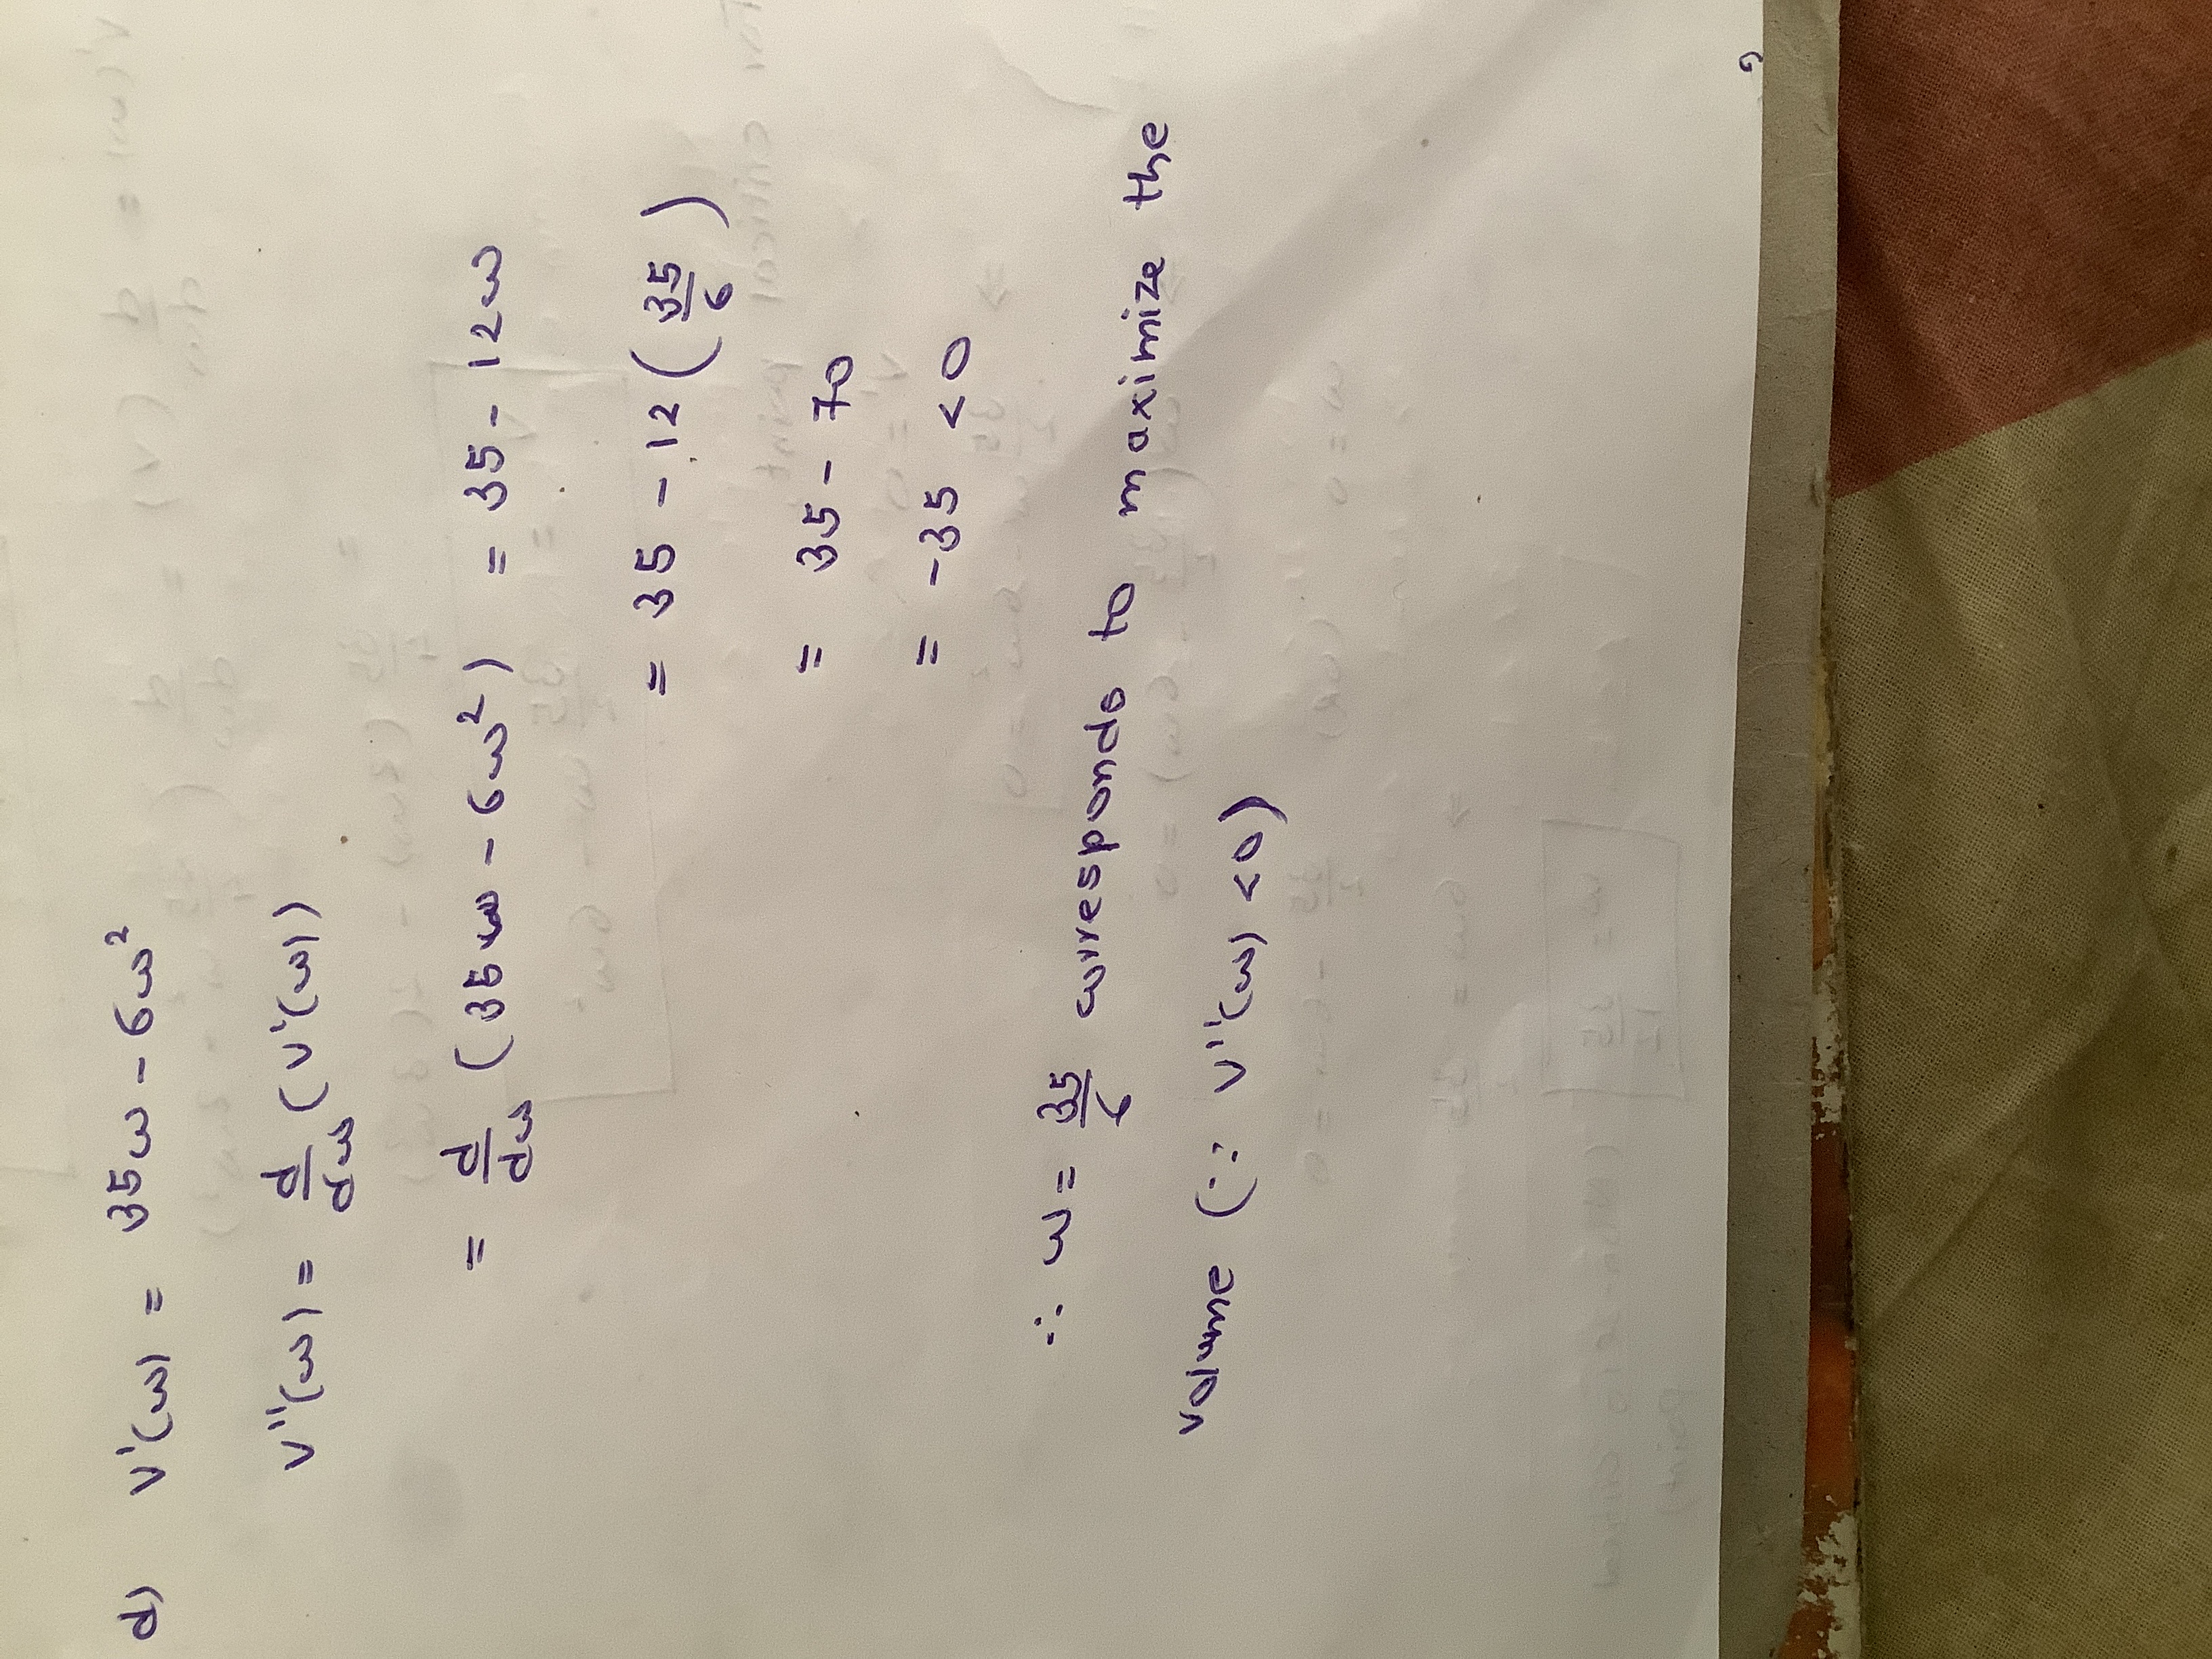 d) V'(w) = 35w - 6w²
V''(w) = d/dw (V'(w))
= d/dw (35w - 6w²) = 35 - 12w
= 35 - 12 (35/6)
= 35 - 70
= -35 < 0
∴ w = 35/6 corresponds to maximize the
volume (∵ V''(w) < 0)